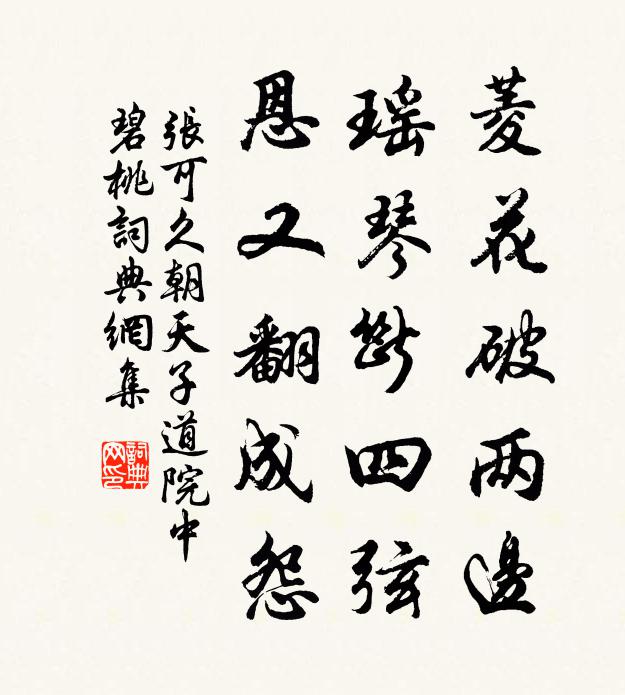 菱花破两邊
瑶琴斷四弦
恩又翻成怨
張可久朝天子道院中
碧桃詞典網集
詞典网印